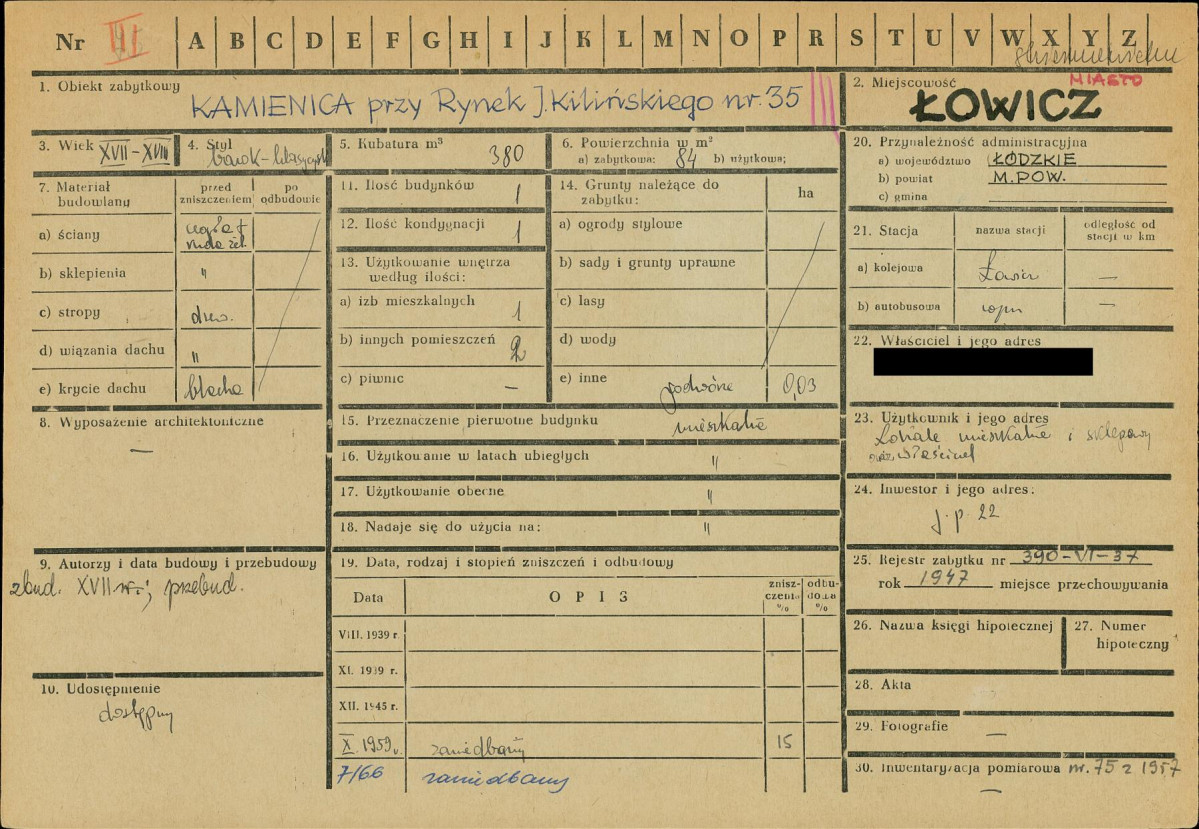 Nr III A B C D E F G H I J K L M N O P R S T U V W X Y Z
1. Obiekt zabytkowy
KAMIENICA przy Rynek J. Kilińskiego nr. 35
2. Miejscowość MIASTO
ŁOWICZ
3. Wiek XVII-XVIII
4. Styl
5. Kubatura m³ 380
6. Powierzchnia w m²
a) zabytkowa: 84 b) użytkowa;
7. Materiał budowlany
przed zniszczeniem
po odbudowie
a) ściany cegła +
ruda żel.
b) sklepienia "
c) stropy drew.
d) wiązania dachu "
e) krycie dachu blacha
8. Wyposażenie architektoniczne
—
9. Autorzy i data budowy i przebudowy
zbud. XVII w.; przebud.
10. Udostępnienie
dostępny
11. Ilość budynków 1
12. Ilość kondygnacji 1
13. Użytkowanie wnętrza
według ilości:
a) izb mieszkalnych 1
b) innych pomieszczeń 2
c) piwnic —
14. Grunty należące do
zabytku: ha
a) ogrody stylowe
b) sady i grunty uprawne
c) lasy
d) wody
e) inne podwórze 0,03
15. Przeznaczenie pierwotne budynku mieszkalne
16. Użytkowanie w latach ubiegłych "
17. Użytkowanie obecne "
18. Nadaje się do użycia na: "
19. Data, rodzaj i stopień zniszczeń i odbudowy
Data OPIS zniszczenia % odbudowa %
VIII. 1939 r.
XI. 1939 r.
XII. 1945 r.
X. 1959 r. zaniedbany 15
7/66 zaniedbany
20. Przynależność administracyjna
a) województwo ŁÓDZKIE
b) powiat M. POW.
c) gmina
21. Stacja nazwa stacji odległość od
stacji w km
a) kolejowa Łowicz —
b) autobusowa —
22. Właściciel i jego adres
23. Użytkownik i jego adres
Lokale mieszkalne i sklepowy
oraz właściciel
24. Inwestor i jego adres:
j.p 22
25. Rejestr zabytku nr 390-VI-37
rok 1947 miejsce przechowywania
26. Nazwa księgi hipotecznej
27. Numer
hipoteczny
28. Akta
29. Fotografie
—
30. Inwentaryzacja pomiarowa nr. 75 z 1957
—